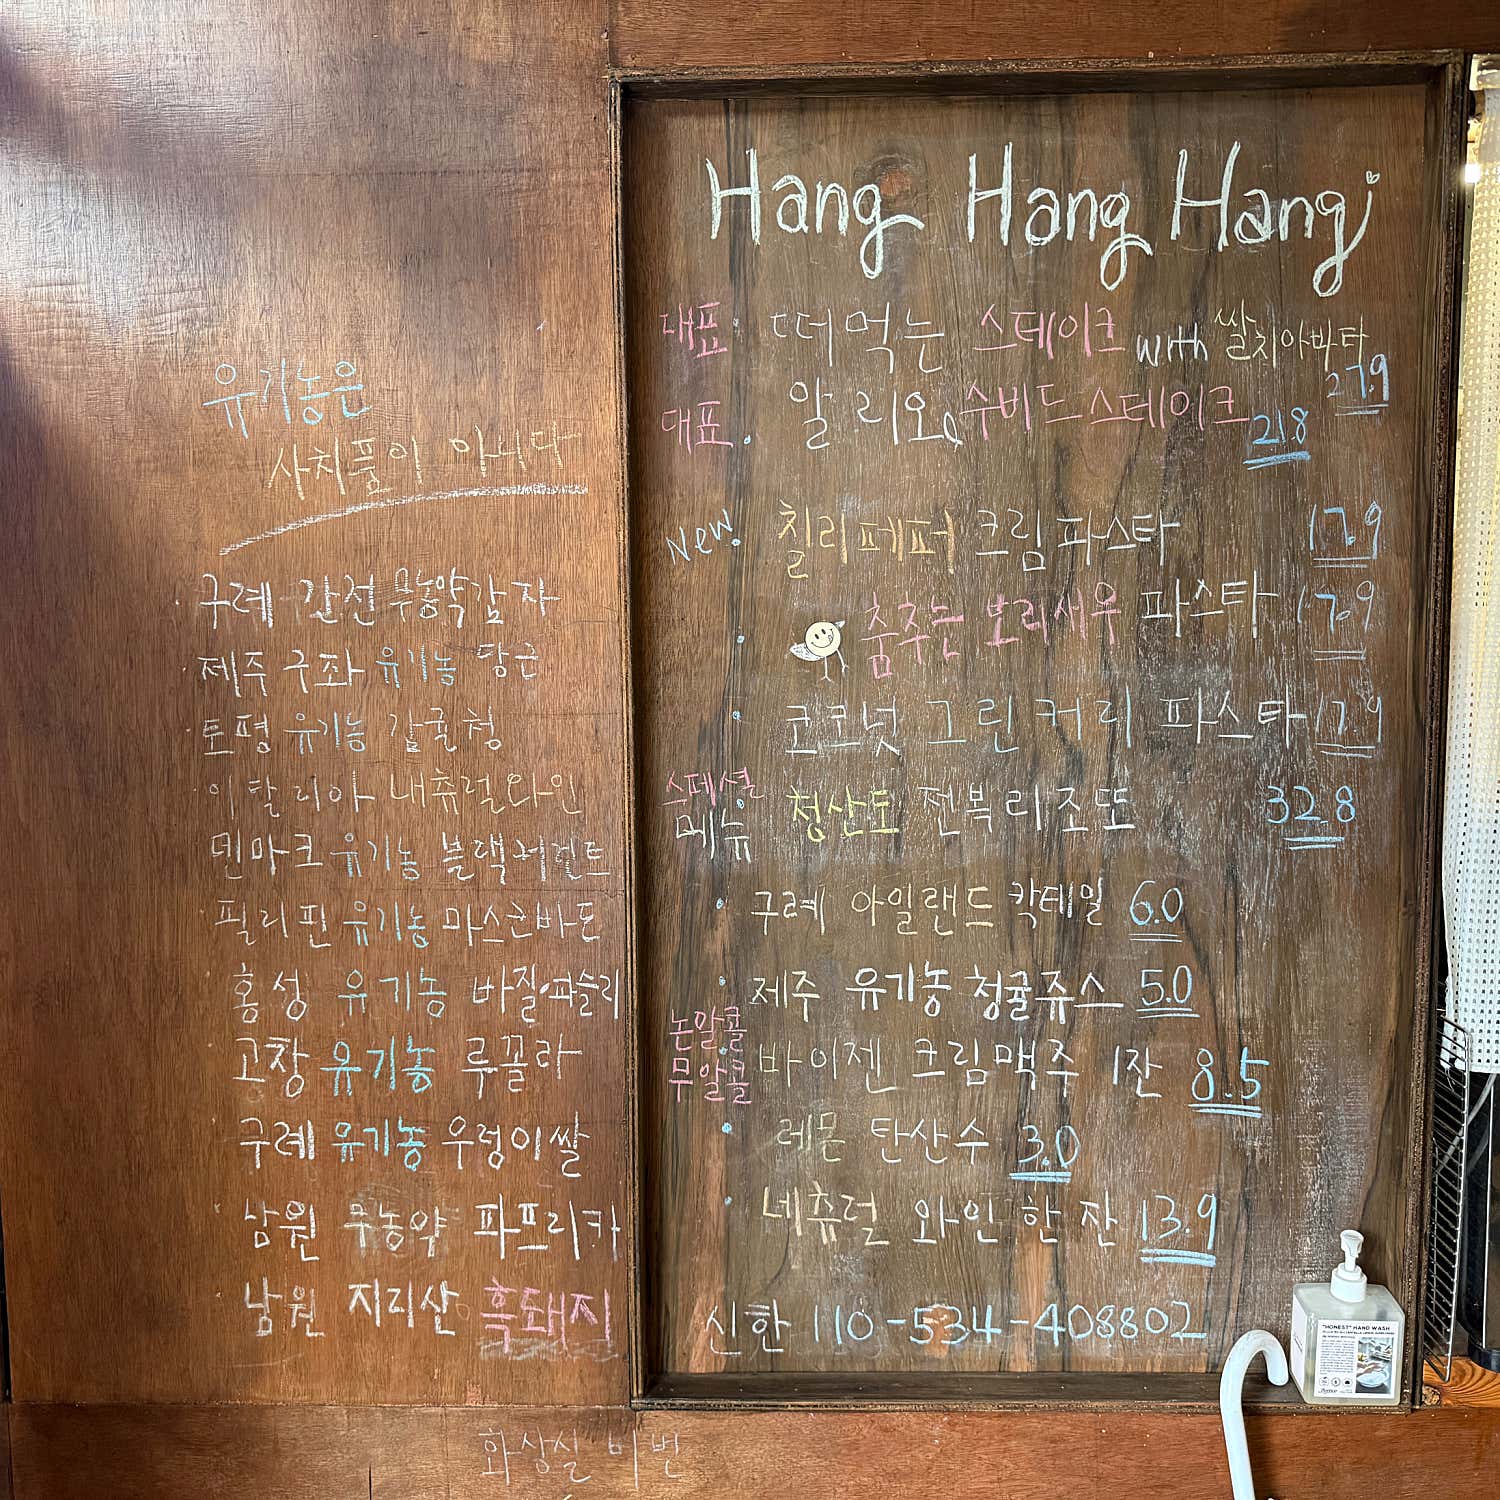 유기농은
사치품이 아니다
구례 간전 무농약감자
제주 구좌 유기농 당근
토평 유기농 감귤청
이탈리아 내츄럴와인
덴마크 유기농 블랙커런트
필리핀 유기농 마스코바도
홍성 유기농 바질·파슬리
고창 유기농 루꼴라
구례 유기농 우렁이쌀
남원 무농약 파프리카
남원 지리산 흑돼지
화장실 비번
Hang Hang Hang
대표 떠먹는 스테이크 with 쌀치아바타 27.9
대표 알리오 수비드스테이크 21.8
New! 칠리페퍼 크림파스타 17.9
춤추는 보리새우 파스타 17.9
코코넛 그린커리 파스타 17.9
스페셜 메뉴 청산도 전복리조또 32.8
구례 아일랜드 칵테일 6.0
제주 유기농 청귤쥬스 5.0
논알콜
무알콜 바이젠 크림맥주 1잔 8.5
레몬 탄산수 3.0
네츄럴 와인 한 잔 13.9
신한 110-534-408802
"HONEST" HAND WASH